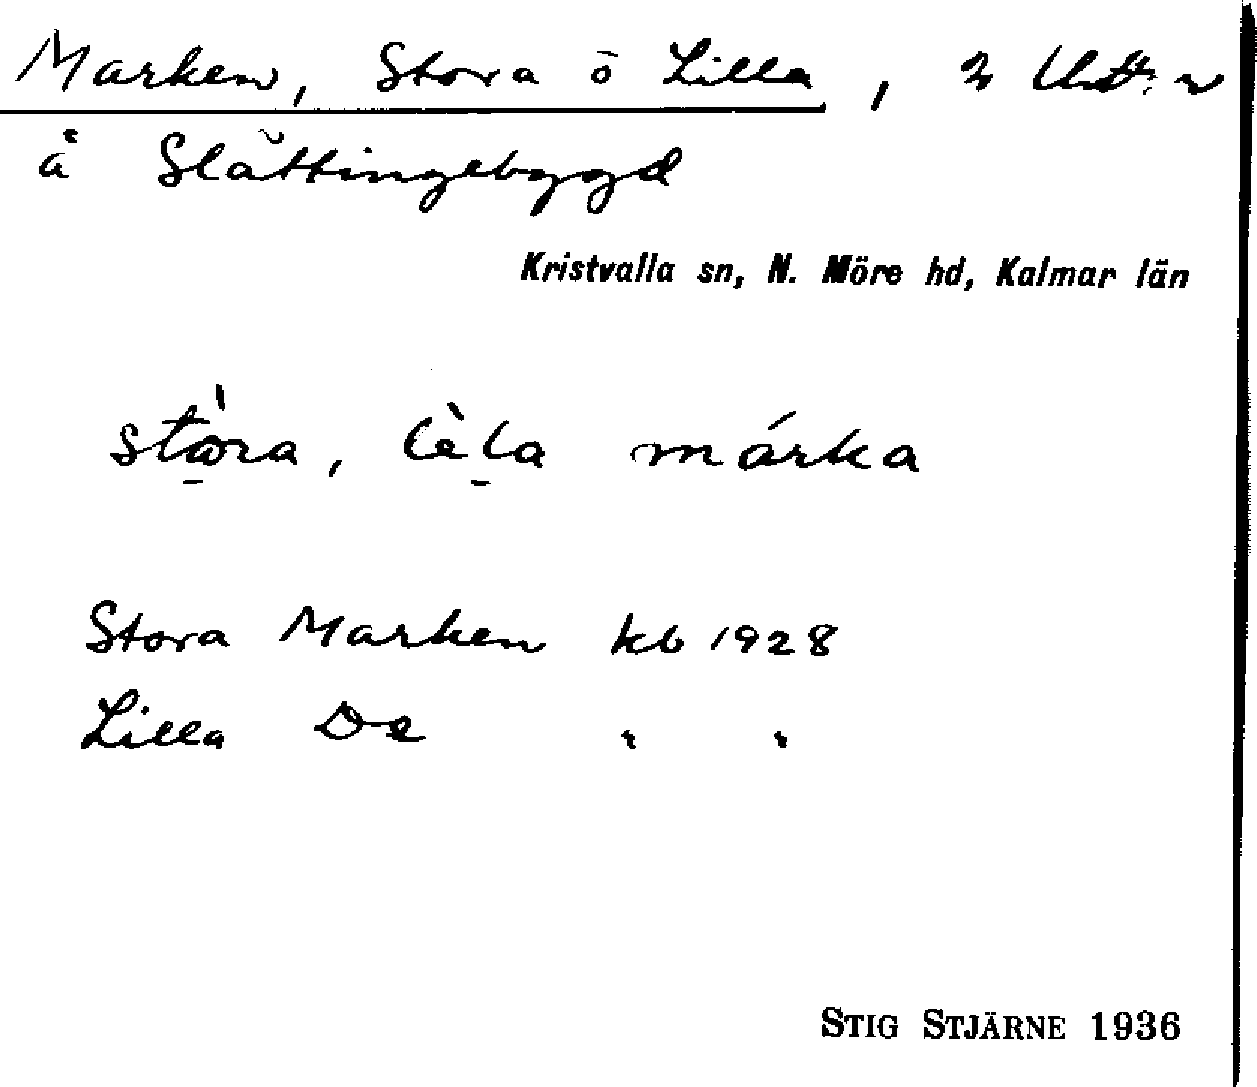 Marken, Stora o Lilla, 2
å Slättingebygd
Kristvalla sn, N. Möre hd, Kalmar län
stòra, lèla márka
Stora Marken kb 1928
Lilla D:o " "
STIG STJÄRNE 1936